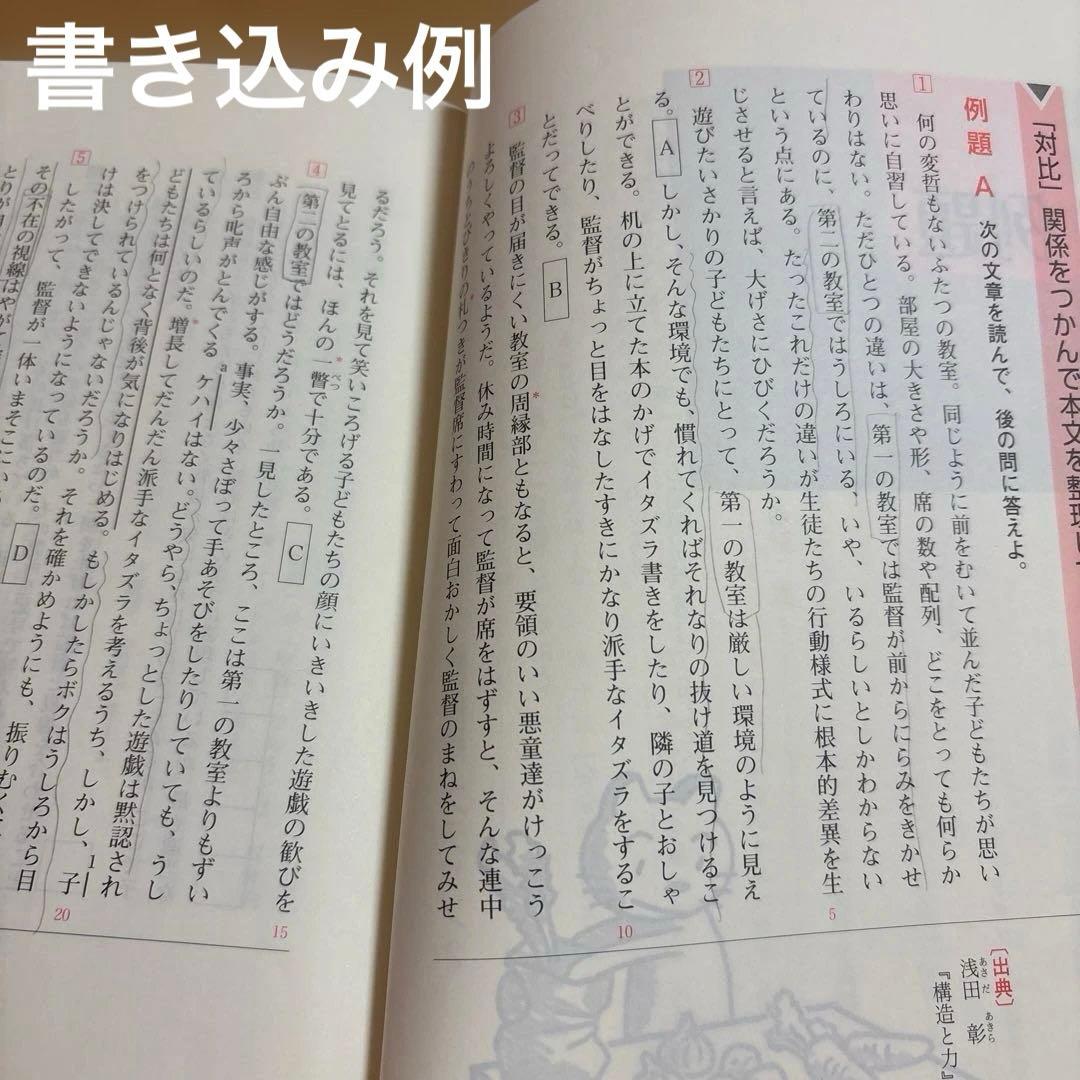 書き込み例
「対比」関係をつかんで本文を整理し
例題 A 次の文章を読んで、後の問に答えよ。
1 何の変哲もないふたつの教室。同じように前をむいて並んだ子どもたちが思い
思いに自習している。部屋の大きさや形、席の数や配列、どこをとっても何らか
わりはない。ただひとつの違いは、第一の教室では監督が前からにらみをきかせ
ているのに、第二の教室ではうしろにいる、いや、いるらしいとしかわからない
という点にある。たったこれだけの違いが生徒たちの行動様式に根本的差異を生
じさせると言えば、大げさにひびくだろうか。
5
2 遊びたいさかりの子どもたちにとって、第一の教室は厳しい環境のように見え
る。 A しかし、そんな環境でも、慣れてくればそれなりの抜け道を見つけるこ
とができる。机の上に立てた本のかげでイタズラ書きをしたり、隣の子とおしゃ
べりしたり、監督がちょっと目をはなしたすきにかなり派手なイタズラをするこ
とだってできる。 B
10
3 監督の目が届きにくい教室の周縁部ともなると、要領のいい悪童達がけっこう
よろしくやっているようだ。休み時間になって監督が席をはずすと、そんな連中
のうちとびきりの札つきが監督席にすわって面白おかしく監督のまねをしてみせ
るだろう。それを見て笑いころげる子どもたちの顔にいきいきした遊戯の歓びを
見てとるには、ほんの一瞥で十分である。 C
べつ
15
4 第二の教室ではどうだろうか。一見したところ、ここは第一の教室よりもずい
ぶん自由な感じがする。事実、少々さぼって手あそびをしたりしていても、うし
ろから叱声がとんでくるケハイはない。どうやら、ちょっとした遊戯は黙認され
a
ているらしいのだ。増長してだんだん派手なイタズラを考えるうち、しかし、子
1
どもたちは何となく背後が気になりはじめる。もしかしたらボクはうしろから目
をつけられているんじゃないだろうか。それを確かめようにも、振りむく
けは決してできないようになっているのだ。 D
20
5 したがって、監督が一体いまそこにい
その不在の視線はやがて
〔出典〕
浅田 彰
あさだ あきら
『構造と力』